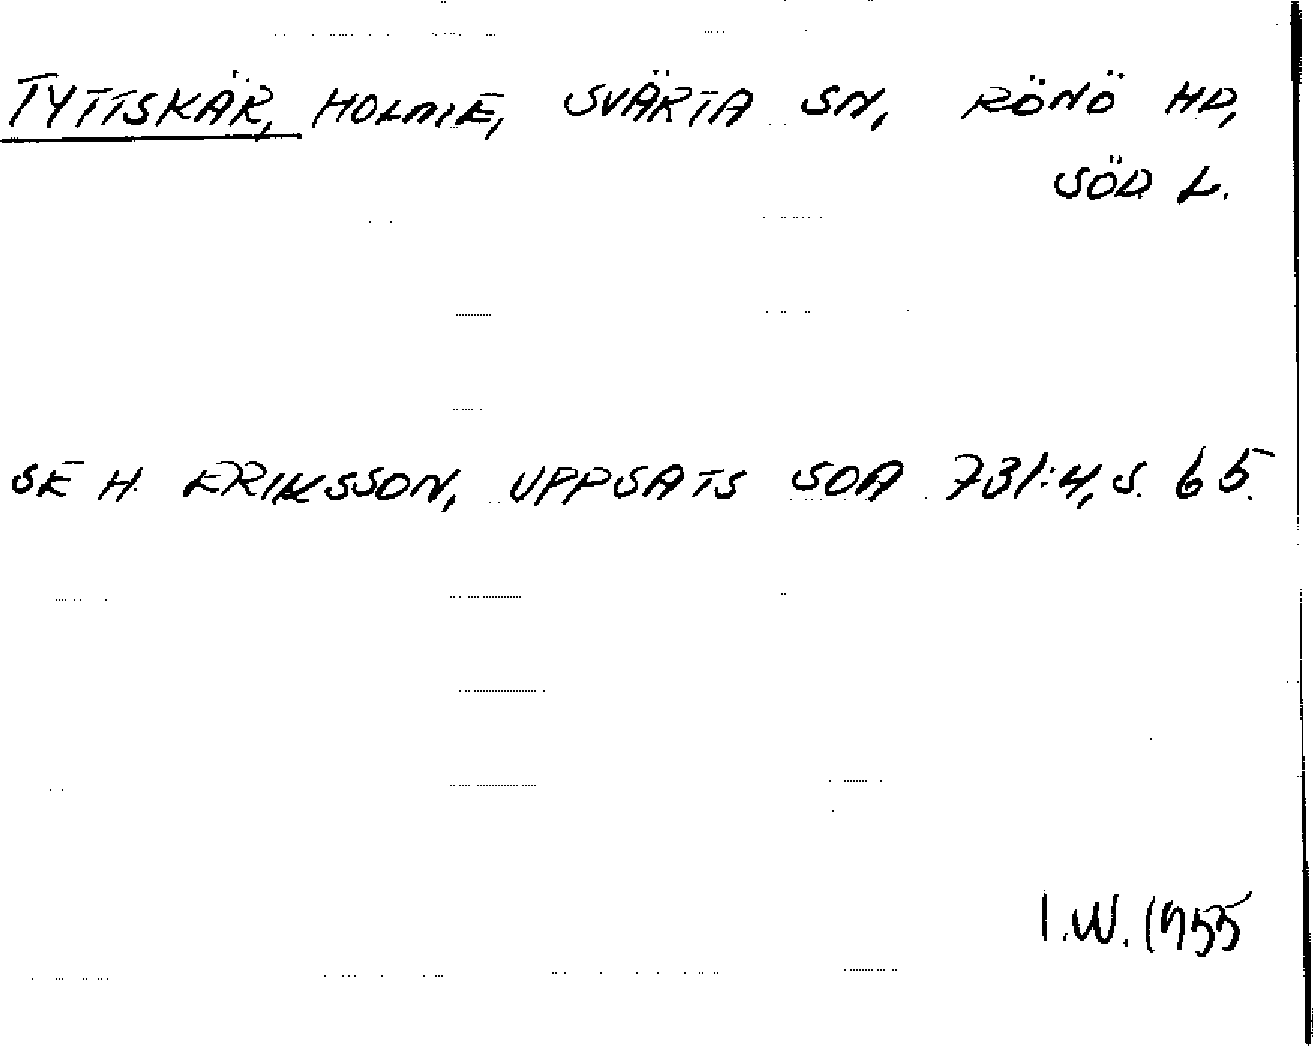 TYTTSKÄR, HOLME, SVÄRTA SN, RÖNÖ HD,
SÖD L.
SE H. ERIKSSON, UPPSATS SOA 731:4, S. 65.
I.W. 1955